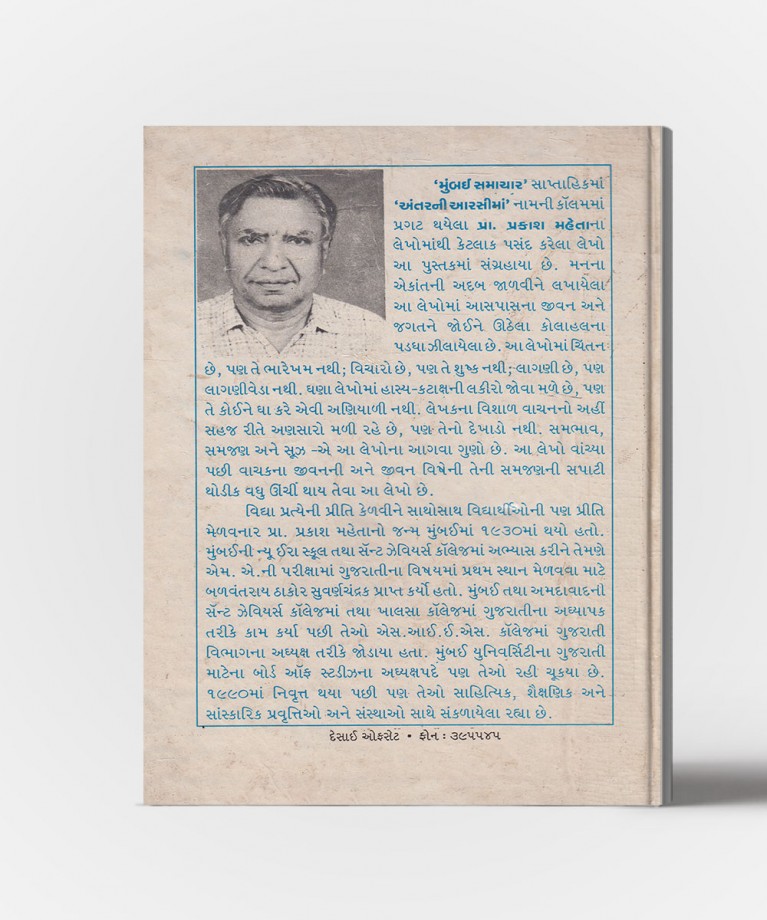 ‘મુંબઈ સમાચાર’ સાપ્તાહિકમાં
‘અંતરની આરસીમાં’ નામની કૉલમમાં
પ્રગટ થયેલા પ્રા. પ્રકાશ મહેતાના
લેખોમાંથી કેટલાક પસંદ કરેલા લેખો
આ પુસ્તકમાં સંગ્રહાયા છે. મનના
એકાંતની અદબ જાળવીને લખાયેલા
આ લેખોમાં આસપાસના જીવન અને
જગતને જોઈને ઊઠેલા કોલાહલના
પડઘા ઝીલાયેલા છે. આ લેખોમાં ચિંતન
છે, પણ તે ભારેખમ નથી; વિચારો છે, પણ તે શુષ્ક નથી; લાગણી છે, પણ
લાગણીવેડા નથી. ઘણા લેખોમાં હાસ્ય-કટાક્ષની લકીરો જોવા મળે છે, પણ
તે કોઈને ઘા કરે એવી અણિયાળી નથી. લેખકના વિશાળ વાચનનો અહીં
સહજ રીતે અણસારો મળી રહે છે, પણ તેનો દેખાડો નથી. સમભાવ,
સમજણ અને સૂઝ -એ આ લેખોના આગવા ગુણો છે. આ લેખો વાંચ્યા
પછી વાચકના જીવનની અને જીવન વિષેની તેની સમજણની સપાટી
થોડીક વધુ ઊંચી થાય તેવા આ લેખો છે.
વિદ્યા પ્રત્યેની પ્રીતિ કેળવીને સાથોસાથ વિદ્યાર્થીઓની પણ પ્રીતિ
મેળવનાર પ્રા. પ્રકાશ મહેતાનો જન્મ મુંબઈમાં ૧૯૩૦માં થયો હતો.
મુંબઈની ન્યૂ ઈરા સ્કૂલ તથા સૅન્ટ ઝેવિયર્સ કૉલેજમાં અભ્યાસ કરીને તેમણે
એમ. એ.ની પરીક્ષામાં ગુજરાતીના વિષયમાં પ્રથમ સ્થાન મેળવવા માટે
બળવંતરાય ઠાકોર સુવર્ણચંદ્રક પ્રાપ્ત કર્યો હતો. મુંબઈ તથા અમદાવાદની
સૅન્ટ ઝેવિયર્સ કૉલેજમાં તથા ખાલસા કૉલેજમાં ગુજરાતીના અધ્યાપક
તરીકે કામ કર્યા પછી તેઓ એસ.આઈ.ઈ.એસ. કૉલેજમાં ગુજરાતી
વિભાગના અધ્યક્ષ તરીકે જોડાયા હતા. મુંબઈ યુનિવર્સિટીના ગુજરાતી
માટેના બોર્ડ ઑફ સ્ટડીઝના અધ્યક્ષપદે પણ તેઓ રહી ચૂકયા છે.
૧૯૯૦માં નિવૃત્ત થયા પછી પણ તેઓ સાહિત્યિક, શૈક્ષણિક અને
સાંસ્કારિક પ્રવૃત્તિઓ અને સંસ્થાઓ સાથે સંકળાયેલા રહ્યા છે.
દેસાઈ ઓફસેટ • ફોન : ૩૯૫૫૪૫